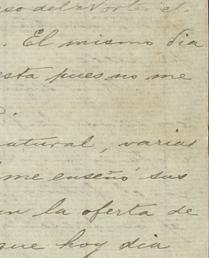 so del Norte el
. El mismo dia
esta pues no me
atural, varias
me enseñó sus
en la oferta de
que hoy dia